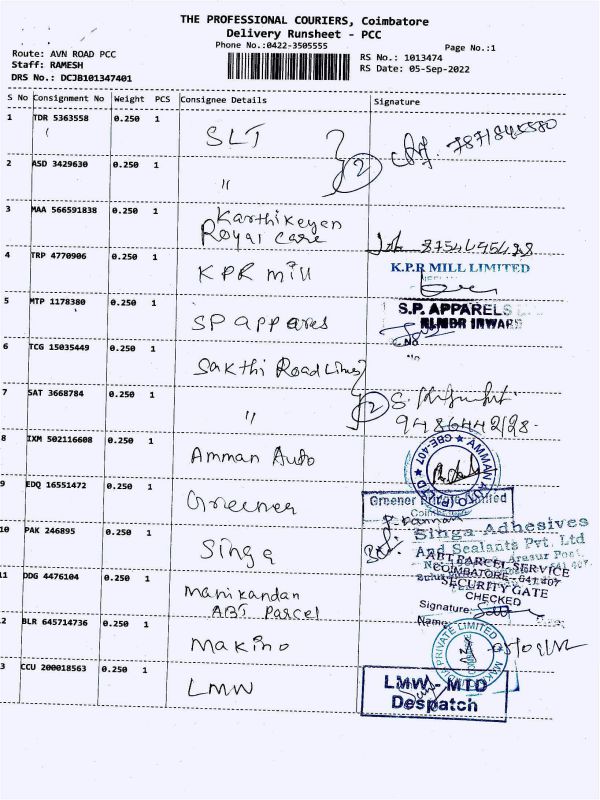 THE PROFESSIONAL COURIERS, Coimbatore
Delivery Runsheet - PCC
Phone No.:0422-3505555
Page No.:1
Route: AVN ROAD PCC
Staff: RAMESH
DRS No.: DCJB101347401
RS No.: 1013474
RS Date: 05-Sep-2022
S No Consignment No Weight PCS Consignee Details Signature
1 TDR 5363558 0.250 1 SLT
2 ASD 3429630 0.250 1 "
2
3 MAA 566591838 0.250 1 Karthikeyen
Royal care
4 TRP 4770906 0.250 1 KPR mill
K.P.R MILL LIMITED
5 MTP 1178380 0.250 1 SP appares
S.P. APPARELS
INWARD
No
6 TCG 15035449 0.250 1 Sakthi Road Lines
7 SAT 3668784 0.250 1 "
2
8 IXM 502116608 0.250 1 Amman Auto
AMMAN AUTO
CBE-407
9 EDQ 16551472 0.250 1 Greener
Greener Private Limited
Coimbatore
10 PAK 246895 0.250 1 Singa
Singa Adhesives
And Sealants Pvt. Ltd
Arasur Post,
11 DDG 4476104 0.250 1 Manikandan
ABT Parcel
ABT PARCEL SERVICE
COIMBATORE - 641 407
SECURITY GATE
CHECKED
Signature:
Name:
2 BLR 645714736 0.250 1 Makino
PRIVATE LIMITED
3 CCU 200018563 0.250 1 LMW
LMW - MTD
Despatch